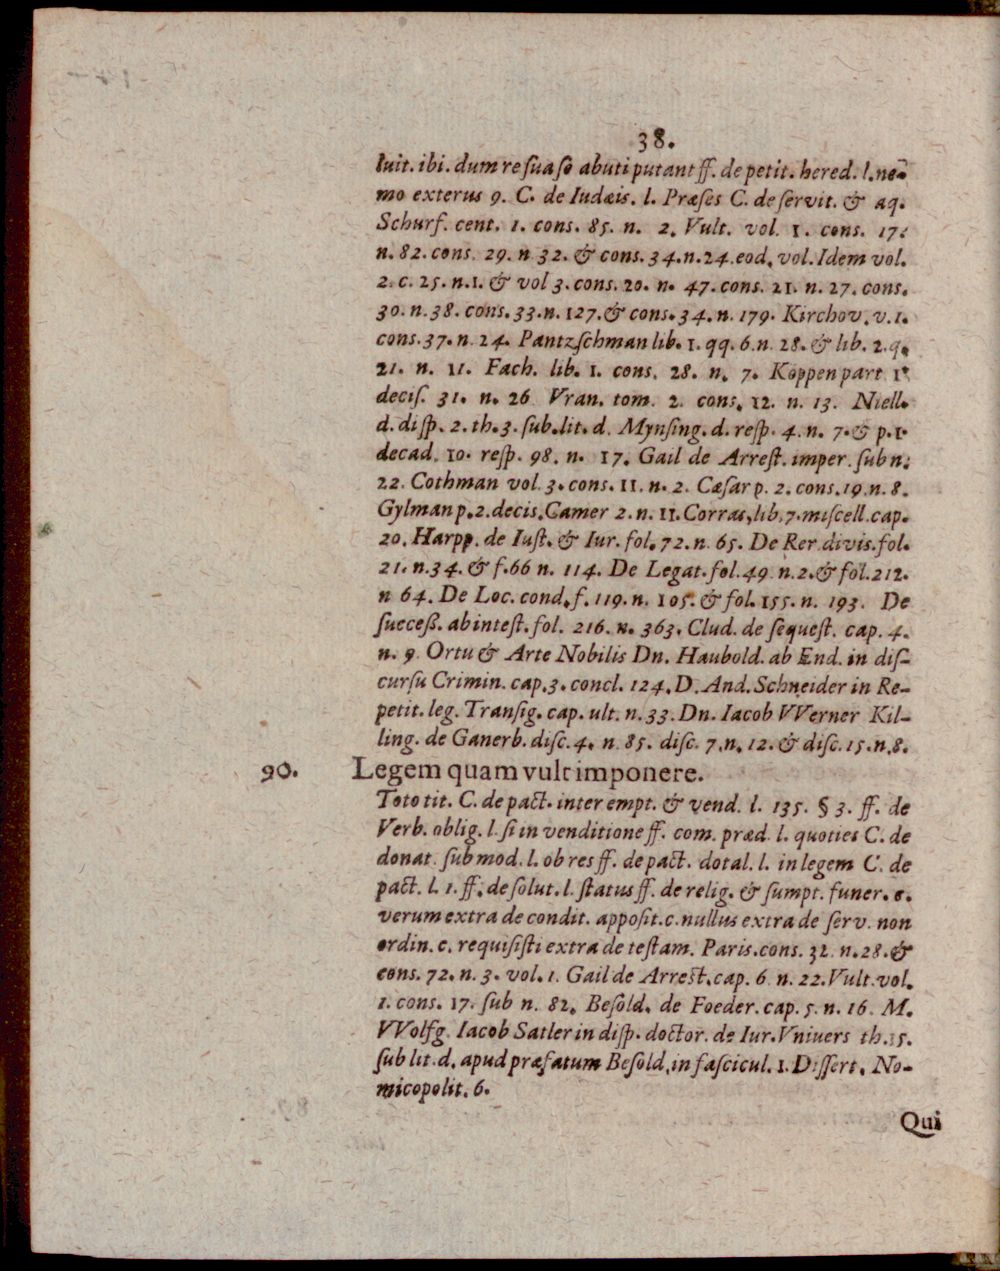 38.
luit. ibi. dum re sua se abuti putant ff. de petit. hered. l. ne-
mo exterus 9. C. de Iudæis. l. Præses C. de servit. & aq.
Schurf. cent. 1. cons. 85. n. 2. Vult. vol. 1. cons. 17.
n. 82. cons. 29. n 32. & cons. 34. n. 24. eod. vol. Idem vol.
2. c. 25. n. 1. & vol 3. cons. 20. n. 47. cons. 21. n. 27. cons.
30. n. 38. cons. 33. n. 127. & cons. 34. n. 179. Kirchov. v. 1.
cons. 37. n. 24. Pantzschman lib. 1. qq. 6. n. 28. & lib. 2. q.
21. n. 11. Fach. lib. 1. cons. 28. n. 7. Köppen part 1.
decis. 31. n. 26 Vran. tom. 2. cons. 12. n. 13. Niell.
d. disp. 2. th. 3. sub. lit. d. Mynsing. d. resp. 4. n. 7. & p. 1.
decad. 10. resp. 98. n. 17. Gail de Arrest. imper. sub n.
22. Cothman vol. 3. cons. 11. n. 2. Cæsar p. 2. cons. 19. n. 8.
Gylman p. 2. decis. Camer 2. n. 11. Corras, lib. 7. miscell. cap.
20. Harpp. de Iust. & Iur. fol. 72. n. 65. De Rer divis. fol.
21. n. 34. & f. 66 n. 114. De Legat. fol. 49. n. 2. & fol. 212.
n 64. De Loc. cond. f. 119. n. 105. & fol. 155. n. 193. De
succeß. ab intest. fol. 216. n. 363. Clud. de sequest. cap. 4.
n. 9. Ortu & Arte Nobilis Dn. Haubold. ab End. in dis-
cursu Crimin. cap. 3. concl. 124. D. And. Schneider in Re-
petit. leg. Transig. cap. ult. n. 33. Dn. Iacob VVerner Kil-
ling. de Ganerb. disc. 4. n. 85. disc. 7. n. 12. & disc. 15. n. 8.
90. Legem quam vult imponere.
Toto tit. C. de pact. inter empt. & vend. l. 135. § 3. ff. de
Verb. oblig. l. si in venditione ff. com. præd. l. quoties C. de
donat. sub mod. l. ob res ff. de pact. dotal. l. in legem C. de
pact. l. 1. ff. de solut. l. status ff. de relig. & sumpt. funer. c.
verum extra de condit. apposit. c. nullus extra de serv. non
ordin. c. requisisti extra de testam. Paris. cons. 32. n. 28. &
cons. 72. n. 3. vol. 1. Gail de Arrest. cap. 6. n. 22. Vult. vol.
1. cons. 17. sub n. 82. Besold. de Foeder. cap. 5. n. 16. M.
VVolfg. Iacob Satler in disp. doctor. de Iur. Vnivers th. 15.
sub lit. d. apud præfatum Besold. in fascicul. 1. Dissert. No-
micopolit. 6.
Qui